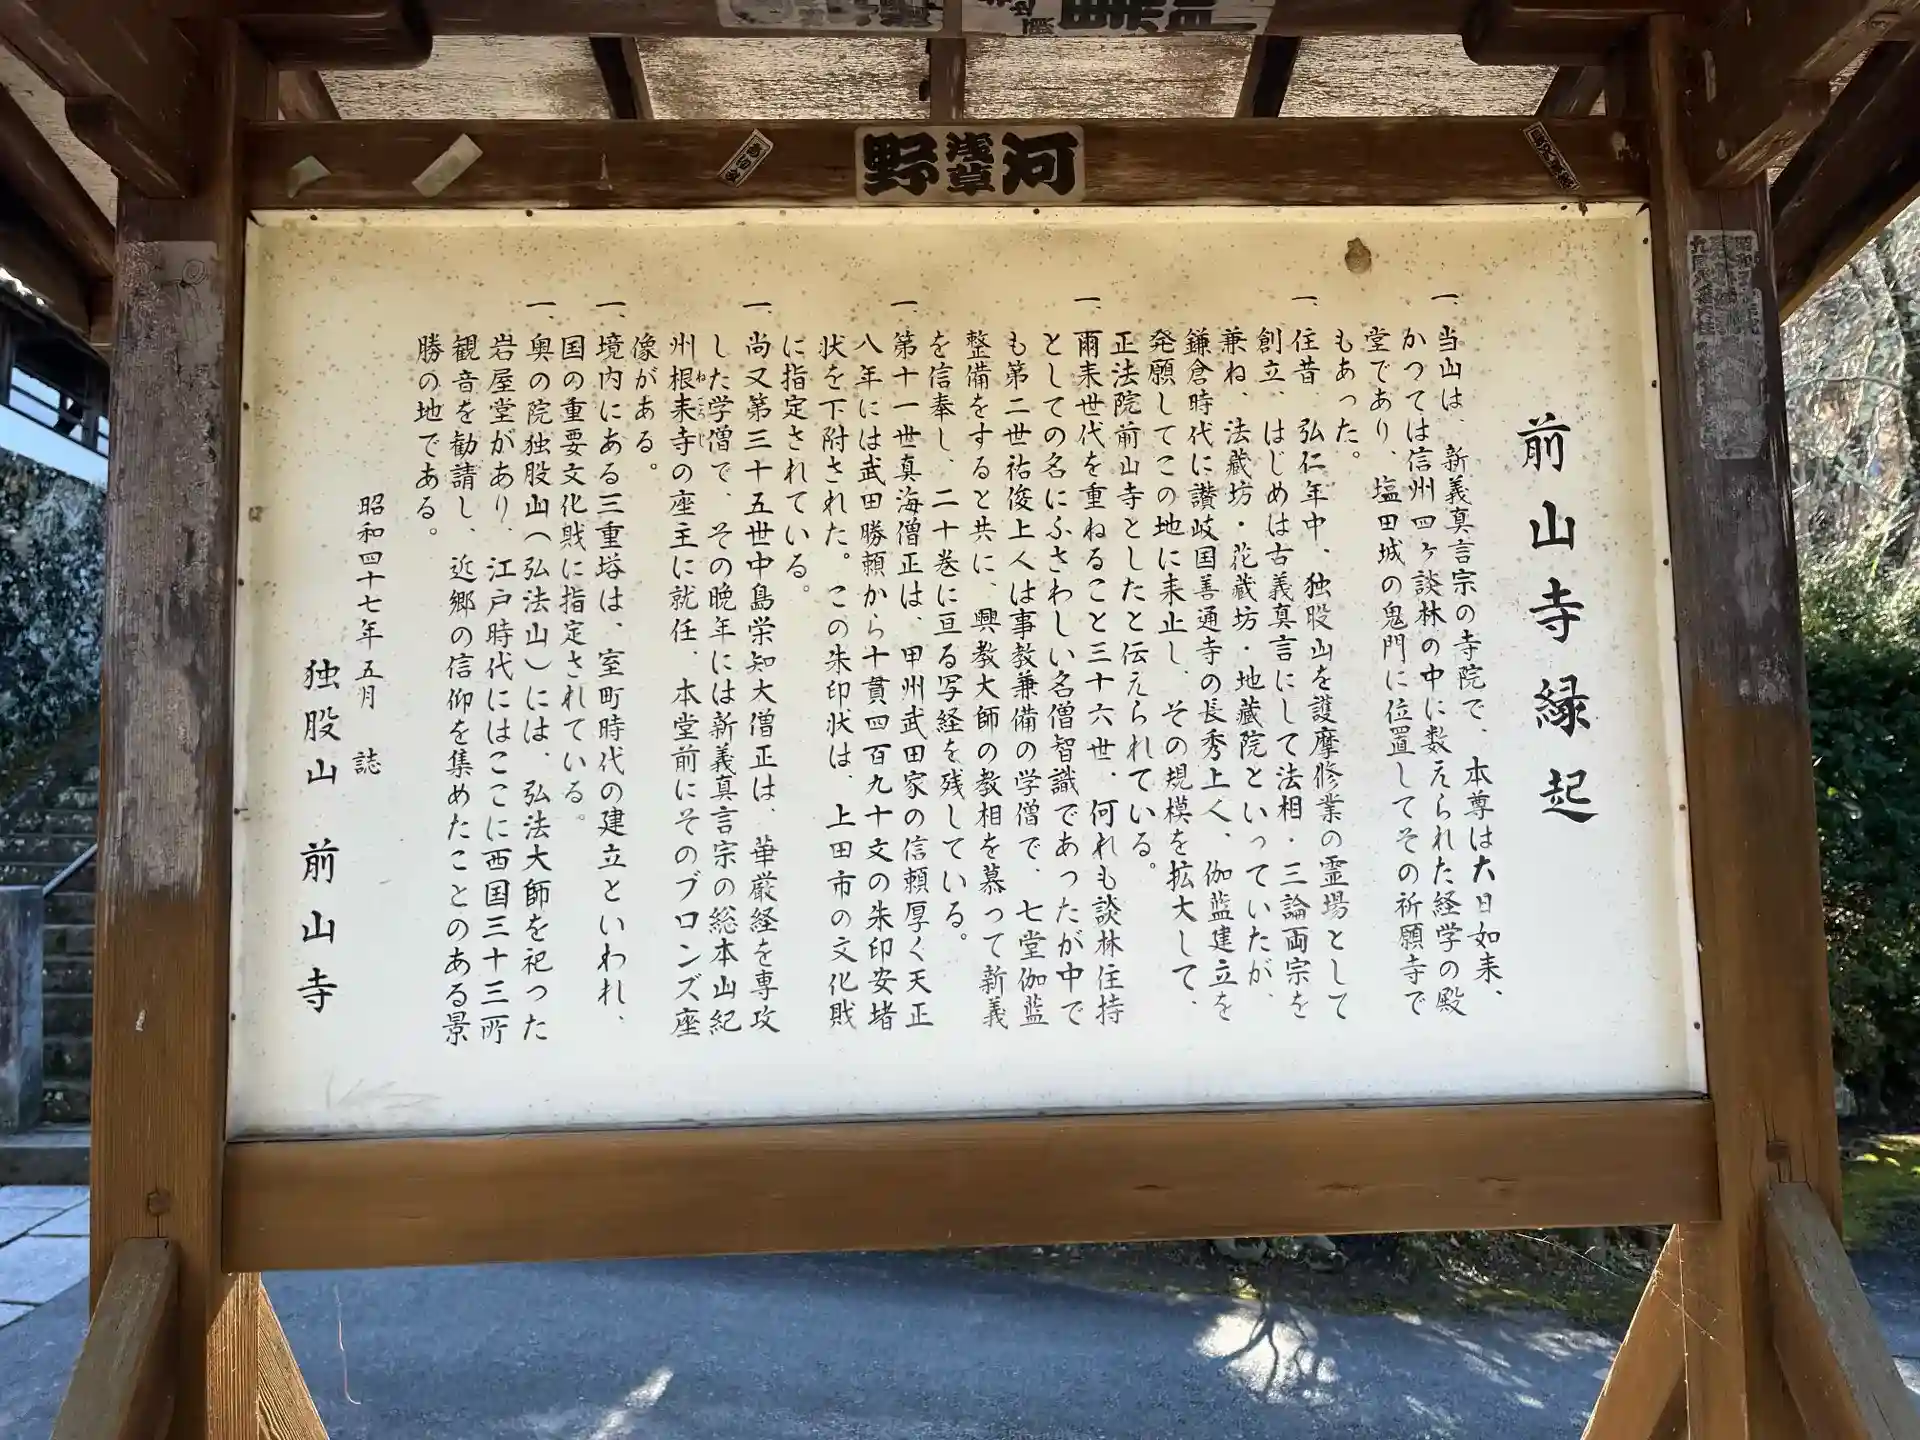 野浅草河
前山寺縁起
一、当山は、新義真言宗の寺院で、本尊は大日如来、
かつては信州四ヶ談林の中に数えられた経学の殿
堂であり、塩田城の鬼門に位置してその祈願寺で
もあった。
一、往昔、弘仁年中、独股山を護摩修業の霊場として
創立、はじめは古義真言にして法相・三論両宗を
兼ね、法蔵坊・花蔵坊・地蔵院といっていたが、
鎌倉時代に讃岐国善通寺の長秀上人、伽藍建立を
発願してこの地に来止し、その規模を拡大して、
正法院前山寺としたと伝えられている。
一、爾来世代を重ねること三十六世、何れも談林住持
としての名にふさわしい名僧智識であったが中で
も第二世祐俊上人は事教兼備の学僧で、七堂伽藍
整備をすると共に、興教大師の教相を慕って新義
を信奉し、二十巻に亘る写経を残している。
一、第十一世真海僧正は、甲州武田家の信頼厚く天正
八年には武田勝頼から十貫四百九十文の朱印安堵
状を下附された。この朱印状は、上田市の文化財
に指定されている。
一、尚又第三十五世中島栄知大僧正は、華厳経を専攻
した学僧で、その晩年には新義真言宗の総本山紀
州根来寺の座主に就任、本堂前にそのブロンズ座
ねごろじ
像がある。
一、境内にある三重塔は、室町時代の建立といわれ、
国の重要文化財に指定されている。
一、奥の院独股山(弘法山)には、弘法大師を祀った
岩屋堂があり、江戸時代にはここに西国三十三所
観音を勧請し、近郷の信仰を集めたことのある景
勝の地である。
昭和四十七年五月 誌
独股山 前山寺